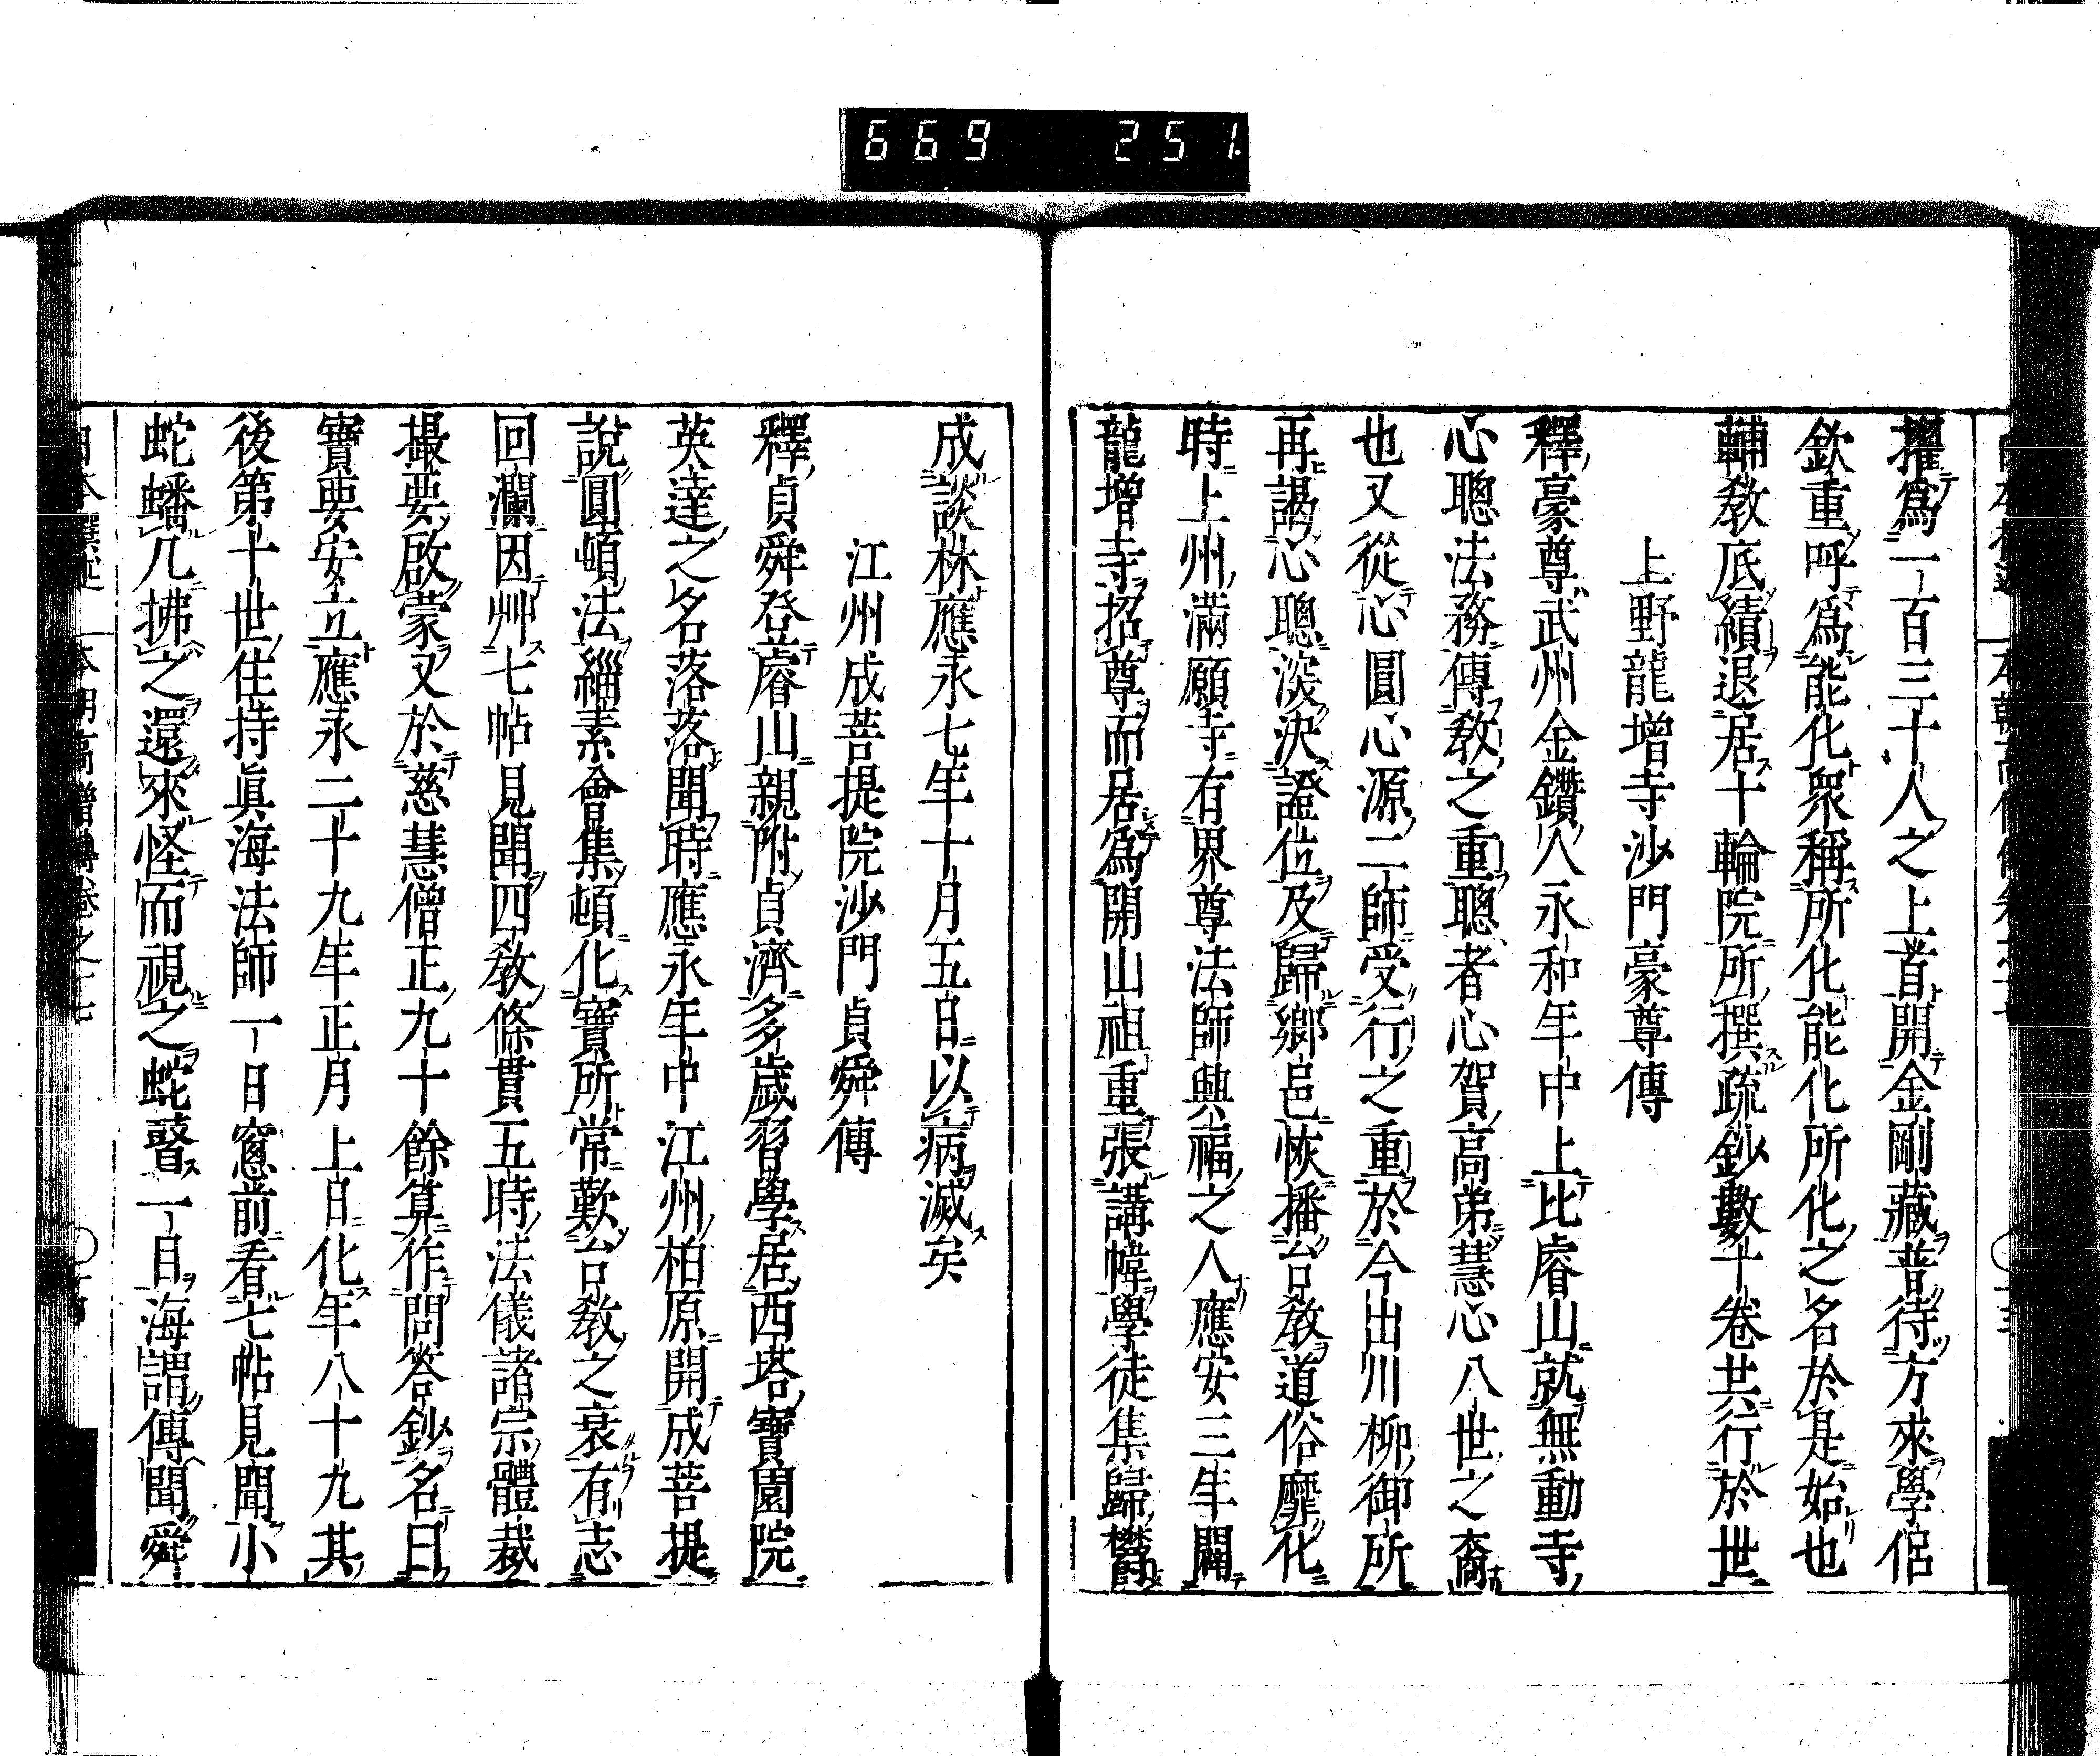 669 251
擢爲一百三十人之上首開金剛藏普待方來學侶
欽重呼爲能化衆稱所化能化所化之名於是始也
輔教底績退居十輪院所撰疏鈔數十卷共行於世
上野龍增寺沙門豪尊傳
釋豪尊武州金鑽人永和年中上比睿山就無動寺
心聰法務傳教之重聰者心賀高弟慧心八世之裔
也又從心圓心源二師受行之重於今出川柳御所
再謁心聰淡決證位及歸鄉邑恢播台教道俗靡化
時上州滿願寺有界尊法師興福之人應安三年闢
龍增寺招尊而居爲開山祖重張講幃學徒集歸欝
成談林應永七年十月五日以病滅矣
江州成菩提院沙門貞舜傳
釋貞舜登睿山親附貞濟多歲習學居西塔寶園院
英達之名落落聞時應永年中江州柏原開成菩提
說圓頓法緇素會集頓化寶所常歎台教之衰有志
回瀾因艸七帖見聞四教條貫五時法儀諸宗體裁
撮要啟蒙又於慈慧僧正九十餘算作問答鈔名曰
寶要安立應永二十九年正月上日化年八十九其
後第十世住持眞海法師一日窓前看七帖見聞小
蛇蟠几拂之還來怪而視之蛇瞽一目海謂傳聞舜